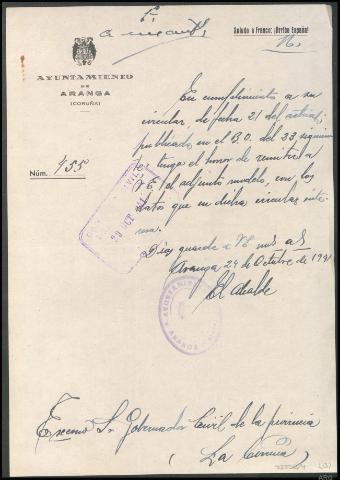 Saludo a Franco: ¡Arriba España!
AYUTAMIENTO
DE
ARANGA
(CORUÑA)
Núm. 455
En cumplimiento a su
circular de fecha 21 del actual,
publicado en el B.O. del 23 siguien
te, tengo el honor de remitir a
V.E. el adjunto modelo, con los
datos que en dicha circular inte-
resa.
Dios guarde a V.E. muchos as
Aranga 24 de Octubre de 1941
El Alcalde
AYUNTAMIENTO
ARANGA
29 OCT
Excemo Sr Gobernador Civil de la provincia
(La Coruña